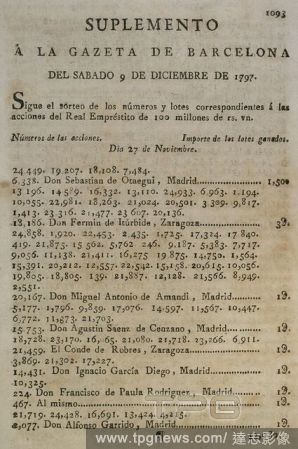 1093
SUPLEMENTO
Á LA GAZETA DE BARCELONA
DEL SABADO 9 DE DICIEMBRE DE 1797.
Sigue el sorteo de los números y lotes correspondientes á las
acciones del Real Empréstito de 100 millones de rs. vn.
Números de las acciones. Importe de los lotes ganados.
Dia 27 de Noviembre.
24.449. 19.207. 18.108. 7,484.
6,338. Don Sebastian de Otaegui, Madrid 1,500
13 196. 14 589. 16,332. 13,110. 24,933. 6,963. 1.194.
10,055. 22,981. 18,263. 21,024. 20,501. 3.309. 9,817.
1,413. 23,316. 21,477. 23 607. 20,136.
18,186. Don Fermin de Itúrbide, Zaragoza
24,858. 1,920. 22,453. 2.435. 1,725. 17,324. 17 840.
419. 21,875. 15 562. 5,762. 246. 9,187. 5,383. 7,717.
9,056. 11,138. 21,411. 16,275. 19 875. 14,750. 1,564.
15,391. 20,212. 12,557. 22,542. 15,158. 20,615. 10,056.
19,805. 18,805. 139. 21,887. 12,128. 21,566. 8,949.
2,551.
20,167. Don Miguel Antonio de Amandi, Madrid
5,177. 1,796. 9,859. 17,076. 14,597. 11,567. 10,447.
6,772. 11,573. 21,703.
15 753. Don Agustin Saenz de Cenzano, Madrid
18,728. 23,170. 16, 65. 21,080. 21,718. 23,266. 6,911.
21,459. El Conde de Robres, Zaragoza
3,869. 21,302. 17,227.
14,431. Don Ignacio García Diego, Madrid
10,325.
224. Don Francisco de Paula Rodriguez, Madrid
467. Al mismo
21,719. 24,428. 16,691. 13,424. 4,215.
2,077. Don Alfonso Garrido, Madrid
TPG
www.tpgnews.com / 達志影像